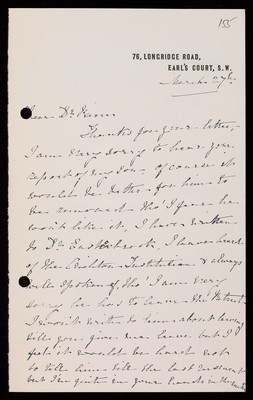 155
76, LONGRIDGE ROAD,
EARL'S COURT, S.W.
March 27th
Dear Dr
Thanks for your letter,
I am very sorry to hear your
report of my Son - of course it
would be better for him to
be removed tho' I fear he
won't like it, I have written
to Dr I have heard
of the Institution & always
well spoken of tho' I am very
sorry he has to leave the
I won't write to him about leaving
till you give me leave but I
feel it would be hard not
to tell him till the last moment
but I'm quite in your hands in the